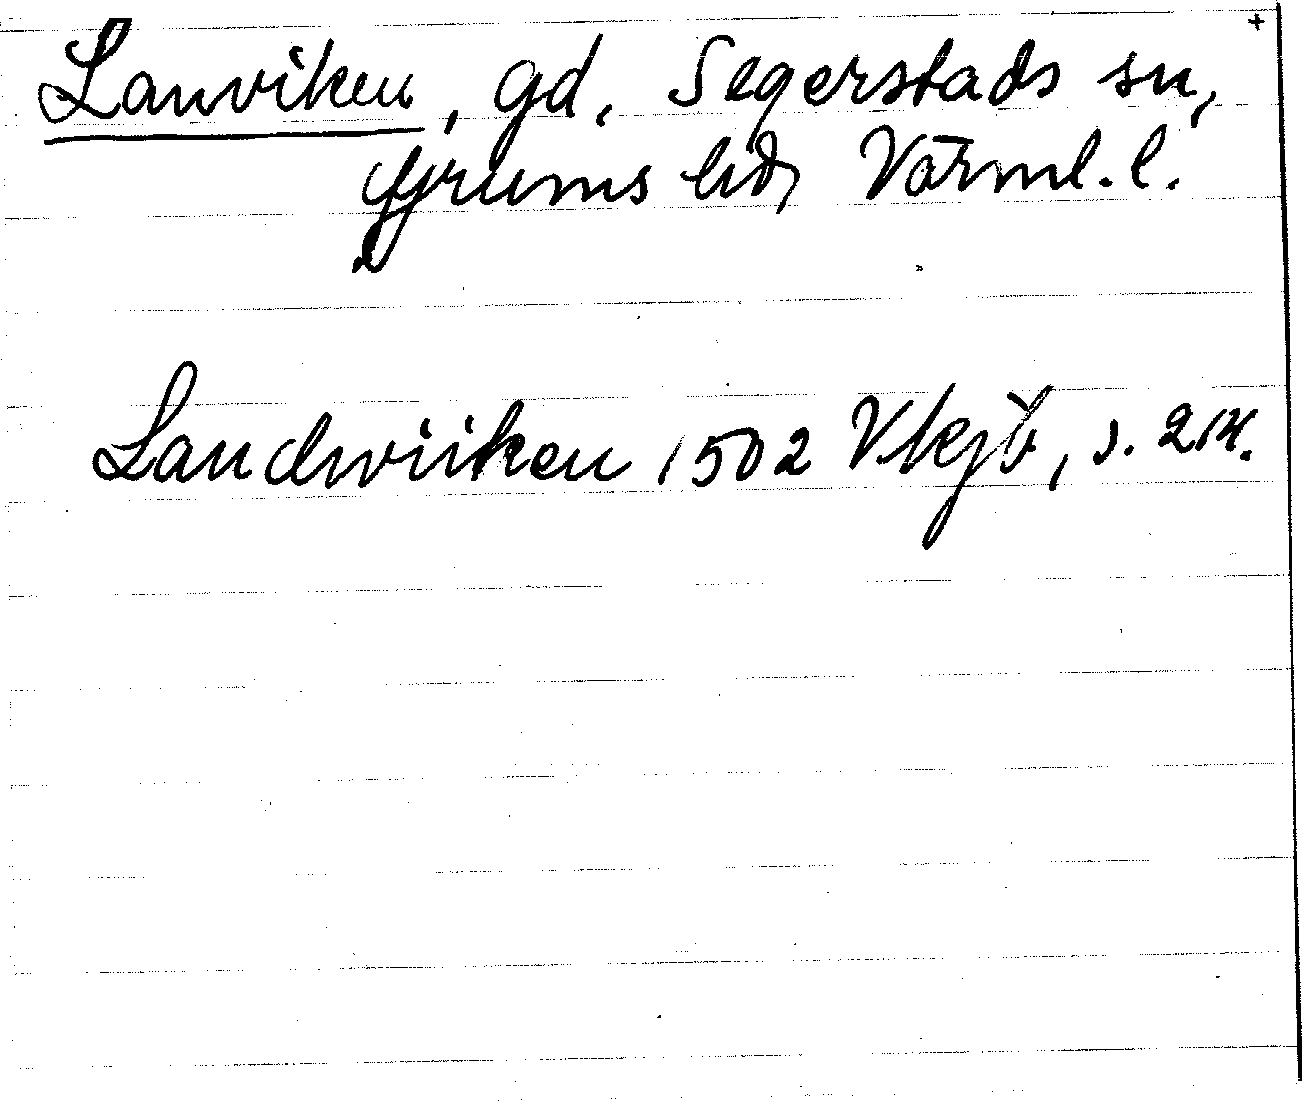 +
Lanviken, gd, Segerstads sn,
Grums hd, Värml. l.
Landwiiken 1502 Vkjb, s. 214.